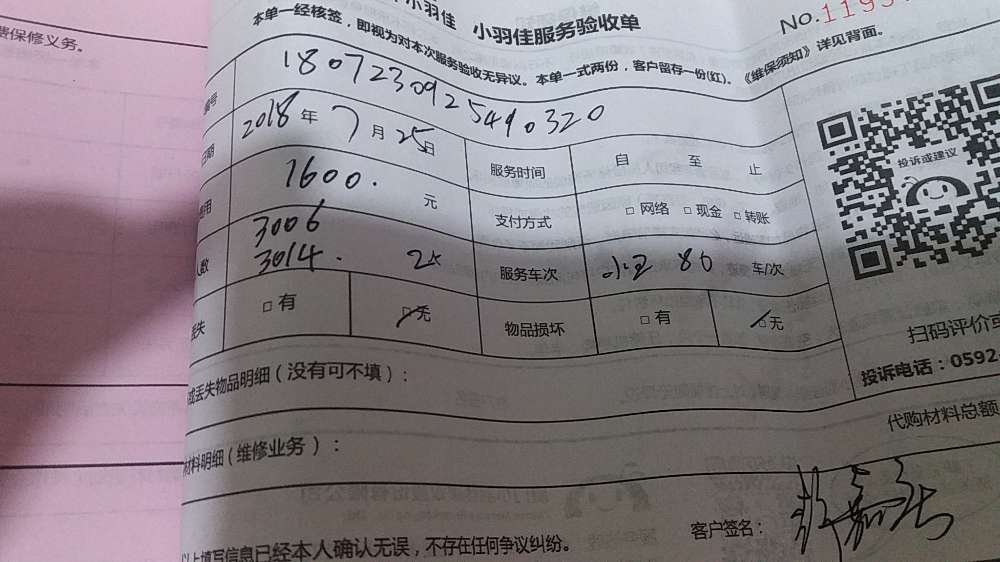 费保修义务。
小羽佳 小羽佳服务验收单
No.1193
本单一经核签，即视为对本次服务验收无异议。本单一式两份，客户留存一份(红)。《维保须知》详见背面。
编号 1807230925490320
日期 2018年7月25日 服务时间 自 至 止
费用 1600. 元 支付方式 □网络 □现金 □转账
3006
人数 3014. 2人 服务车次 80 车/次
丢失 □有 □无 物品损坏 □有 □无
投诉或建议
扫码评价或
投诉电话：0592-
或丢失物品明细(没有可不填)：
代购材料总额
材料明细(维修业务)：
客户签名：
以上填写信息已经本人确认无误，不存在任何争议纠纷。